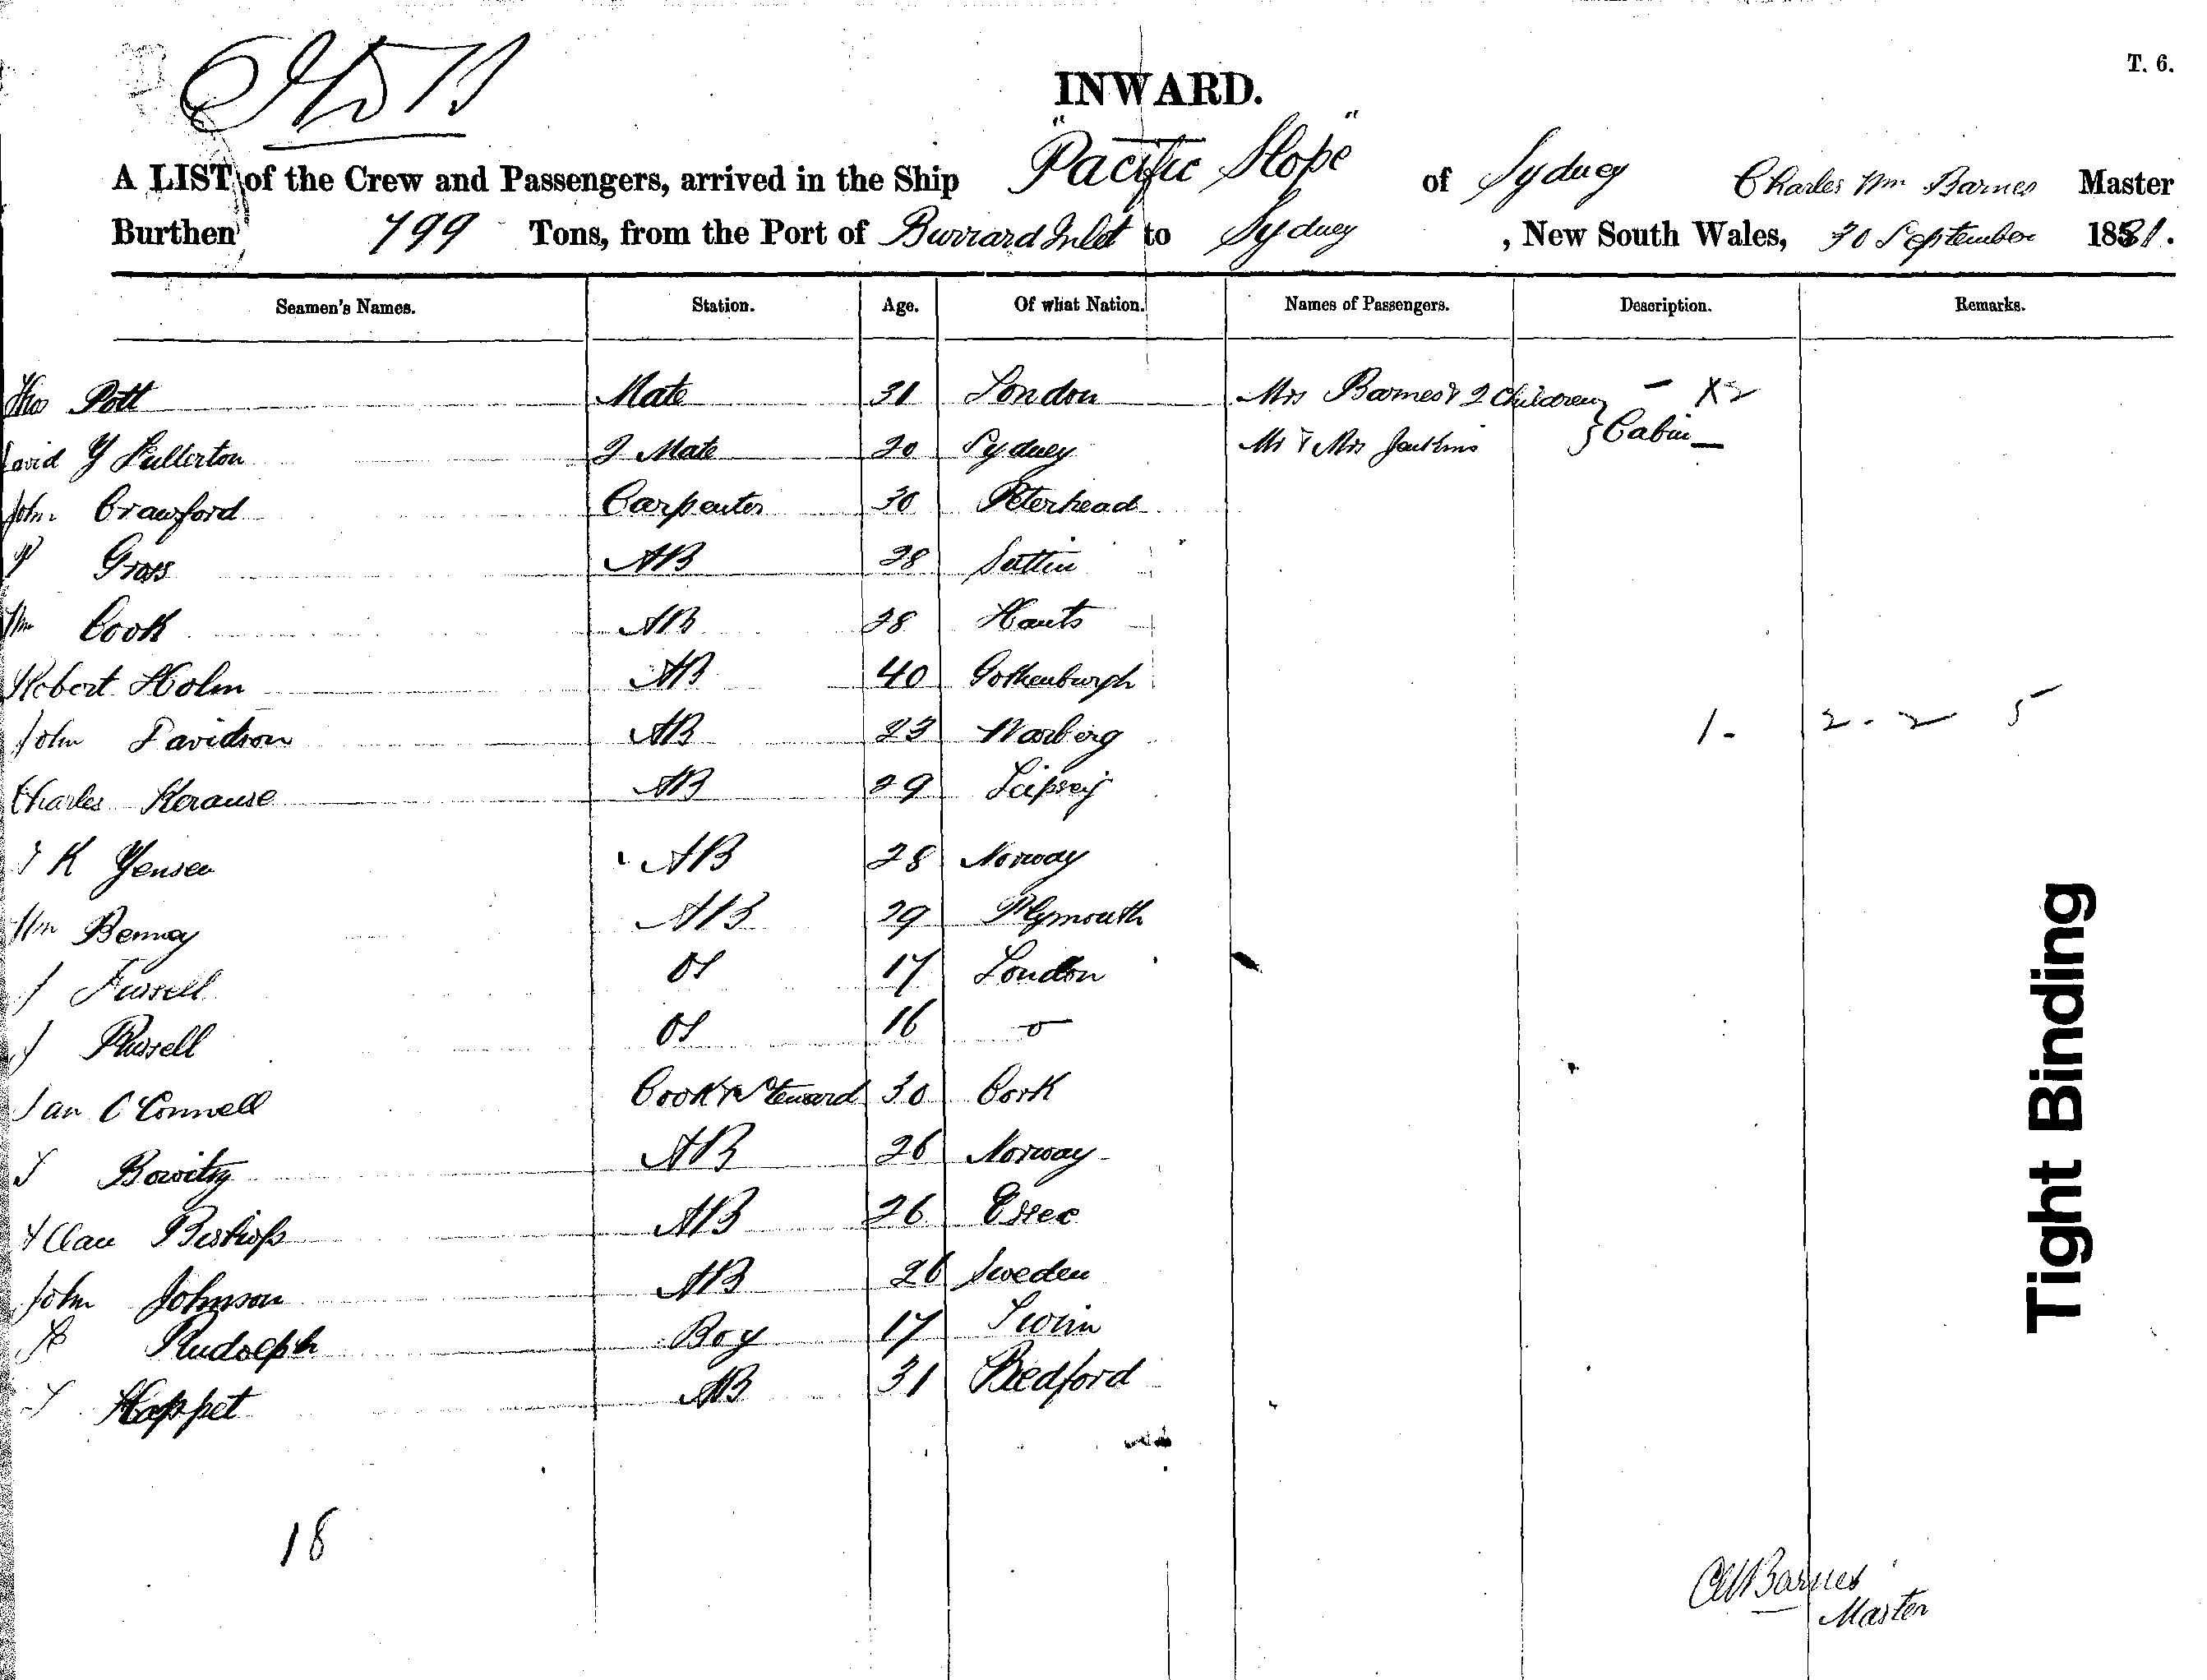 T. 6.
INWARD.
A LIST of the Crew and Passengers, arrived in the Ship "Pacific Slope" of Sydney Charles Wm Barnes Master
Burthen 799 Tons, from the Port of Burrard Inlet to Sydney, New South Wales, 30 September 1881.
Seamen's Names. Station. Age. Of what Nation. Names of Passengers. Description. Remarks.
Thos Pott Mate 31 London Mrs Barnes & 2 Children – X2
David Y Fullerton 2 Mate 20 Sydney Mr & Mrs Jenkins } Cabin –
John Crawford Carpenter 30 Peterhead
Gross AB 28 Stettin
Wm Cook AB 28 Hants
Robert Holm AB 40 Gothenburgh
John Davidson AB 23 Warberg 1 - 2 - 2 5
Charles Krause AB 29 Leipsig
K Yensen AB 28 Norway
Wm Benney AB 29 Plymouth
J Fussell OS 17 London
J Russell OS 16 o
Jan O'Connell Cook & Steward 30 Cork
AB 26 Norway
Allan Bishop AB 26 Essec
John Johnson AB 26 Sweden
Rudolph Boy 17
Happet AB 31 Bedford
18
CW Barnes
Master
Tight Binding